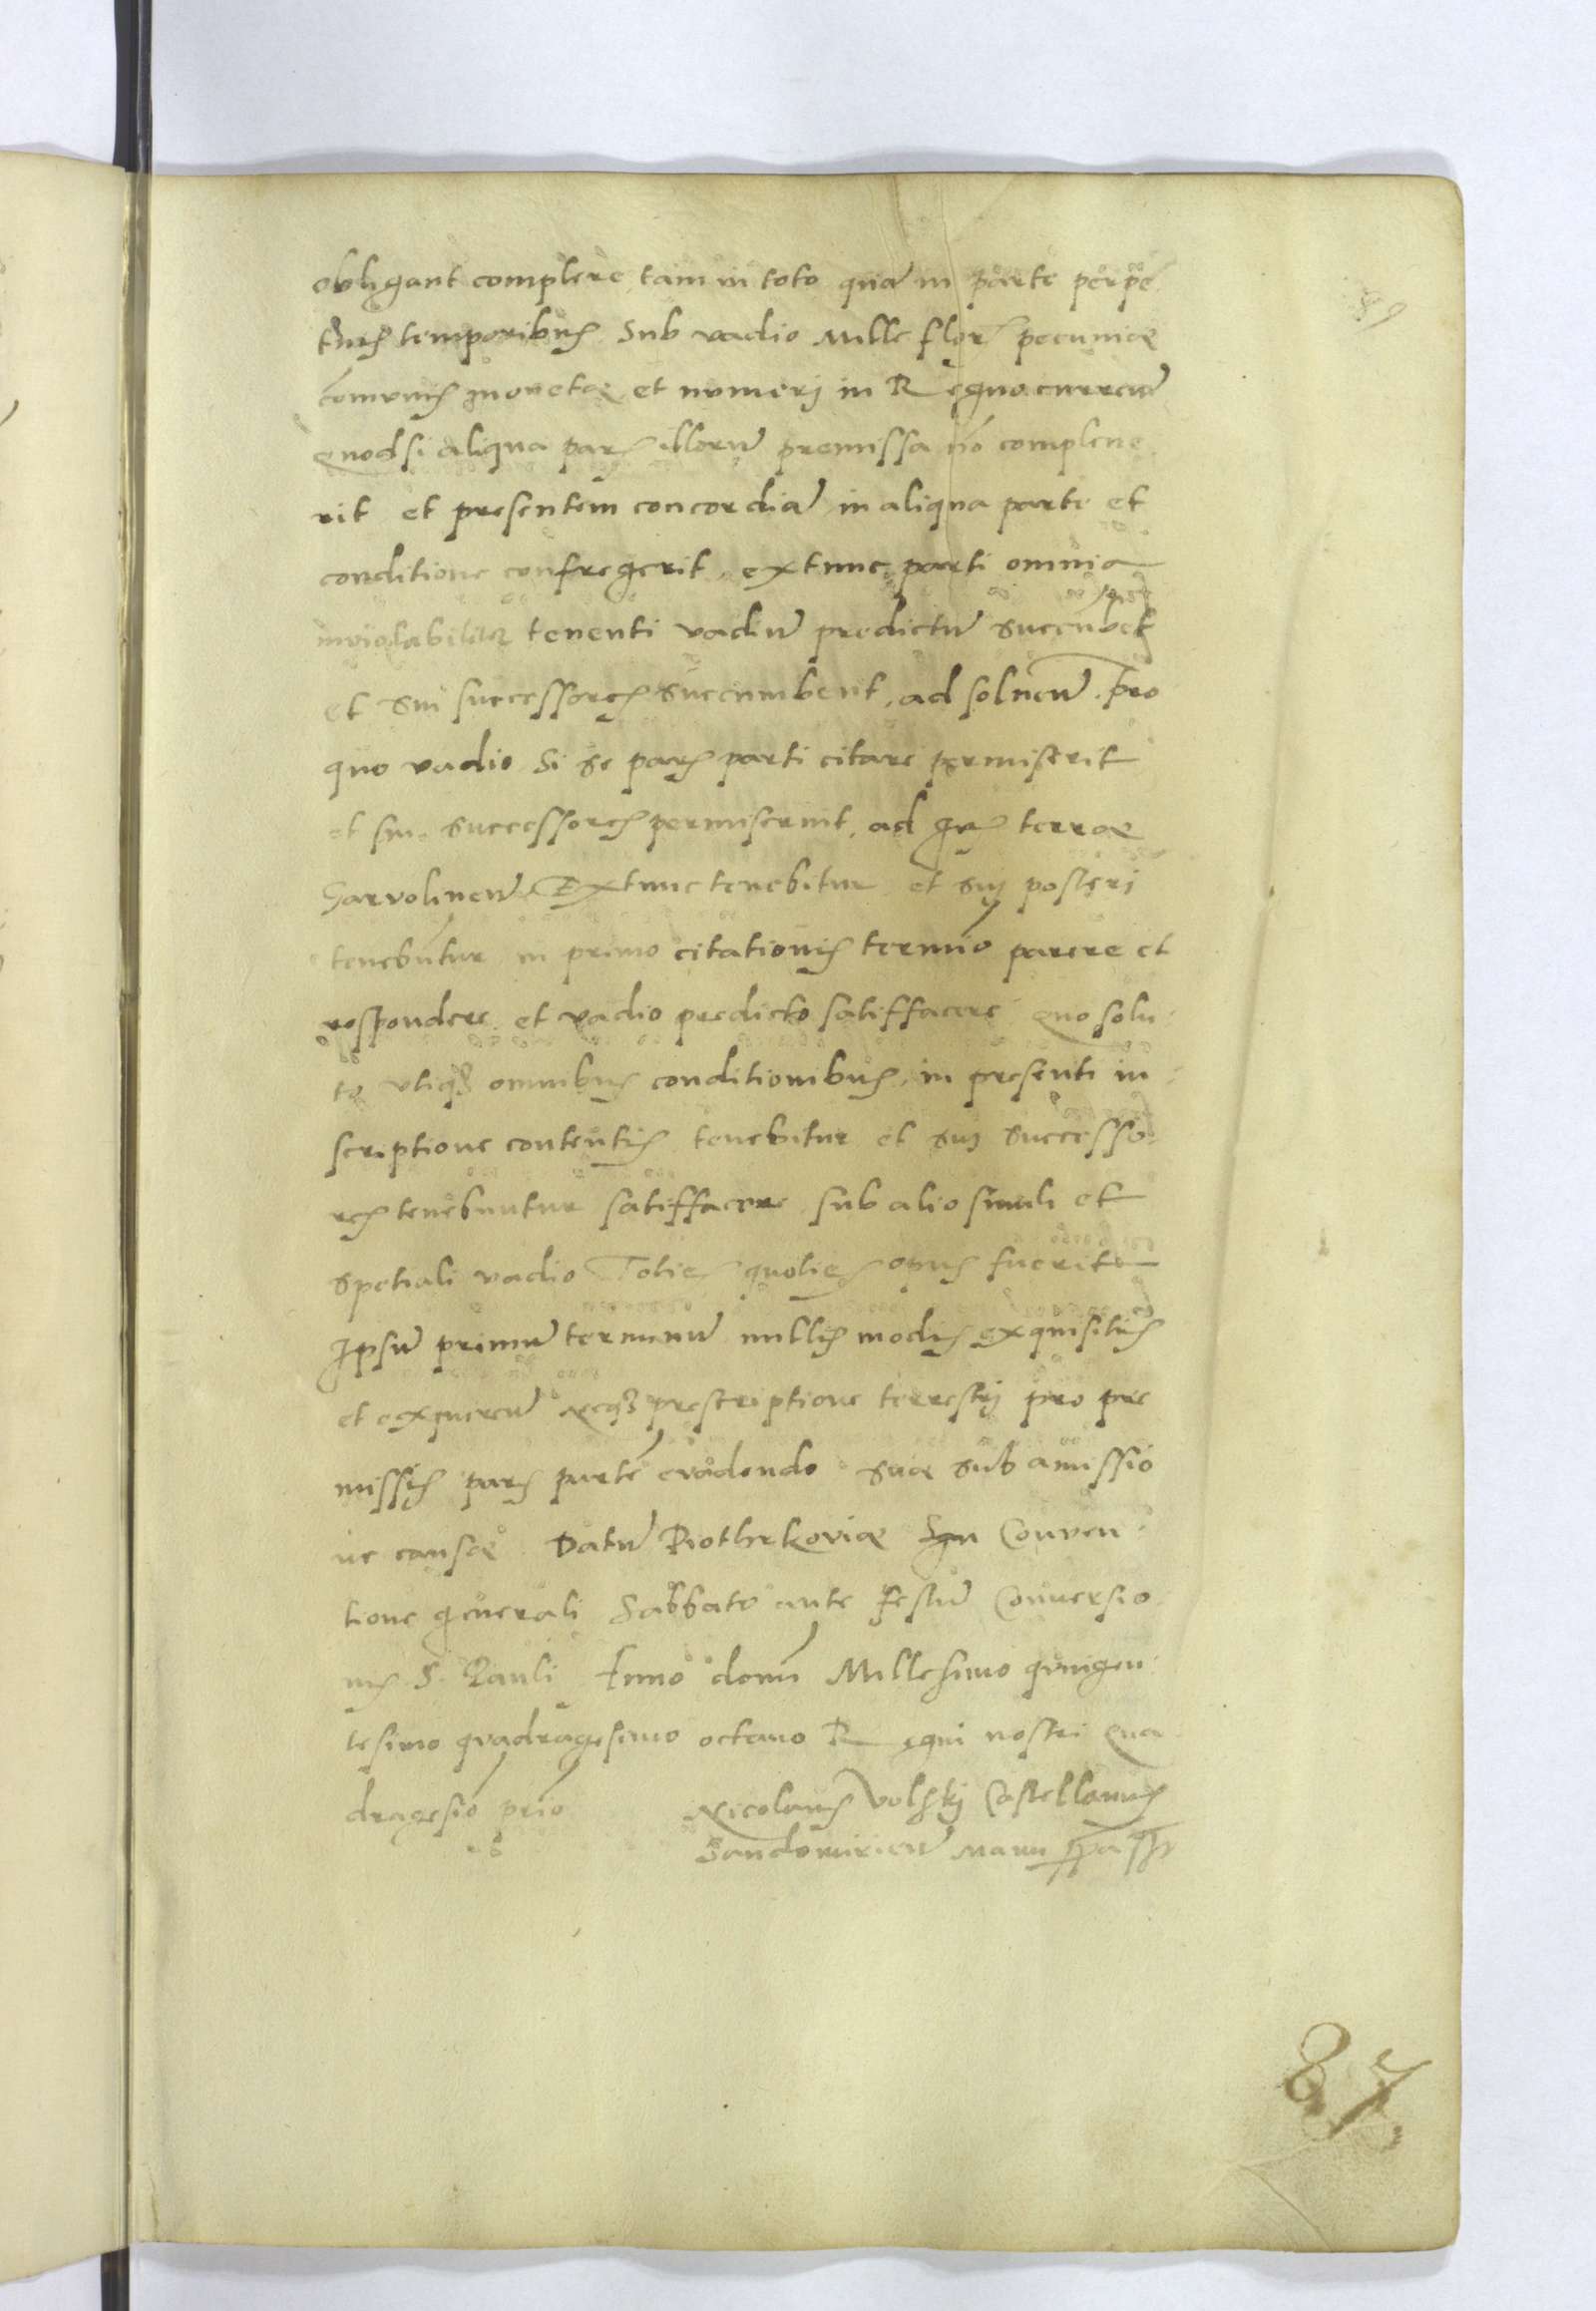 obligant complere, tam in toto quā in parte perpe
tuis temporibus Sub vadio Mille flor̄ pecuniæ
cōmunis monetæ et numeri in Regno currēn̄
quod si aliqua pars illorū premissa nō comple ne
rit et presentem concordiā in aliqua parte et
conditione confregerit, extunc parti omnia
inviolabiliter tenenti vadiū predictū succūbet
et sui successores succumbent, ad solnēn̄. Pro
quo vadio Si se pars parti citare permiserit
et sui successores permiserint, ad grs̄ terræ
Garvolinēn̄. Extunc tenebitur et sui posteri
tenebūtur in primo citationis termīo parere et
respondere et vadio predicto satisfacere quo solu-
to utiqȝ omnibus conditionibus in presenti in-
scriptione contentis tenebitur et sui successo-
res tenebuntur satisfacere sub alio simili et
spetiali vadio Toties quoties opus fuerit
Ipsū primū terminū nullis modis exquisitis
et exquirēn̄ neqȝ prescriptione terrestrj pro pre
missis pars partē evadendo suæ sub amissio
ne causæ. Datū Piothrkoviæ In Conven-
tione generali Sabbato ante festū Conversio
nis S. Pauli Anno domī Millesimo quingen-
tesimo quadragesimo octavo Regni nostri qua
dragesīo prīo
Nicolaus Volskj Castellanus
Sandomiriēn̄ manu ppa sspt
87